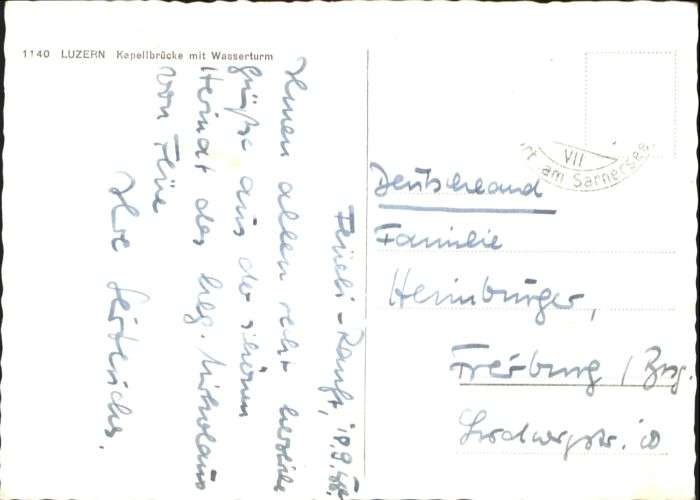 1140 LUZERN Kapellbrücke mit Wasserturm
Flüeli-Ranft, 19.9.
Ihnen allen recht herzliche
Grüße aus der schönen
Heimat des hlg. Nikolaus
von Flüe
Ihre
VII
am Sarnersee
Deutschland
Familie
Heimburger,
Freiburg / Brsg.
Ludwigstr.